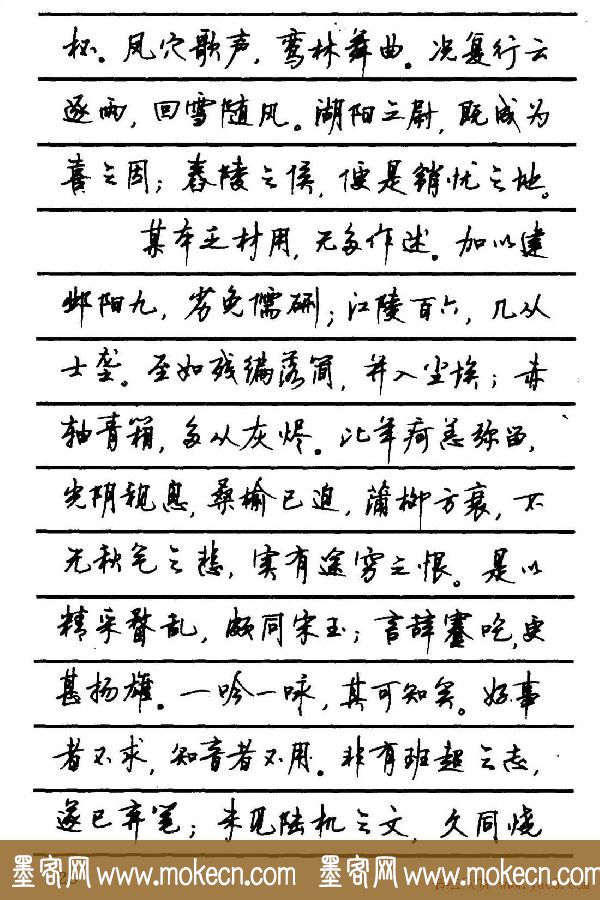 杯。凤穴歌声，鸾林舞曲。况复行云
逐雨，回雪随风。湖阳之尉，既成为
喜之因；舂陵之侯，便是销忧之地。
某本乏材用，无多作述。加以建
邺阳九，劣免儒硎；江陵百六，几从
士垄。至如残编落简，并入尘埃；赤
轴青箱，多从灰烬。比年疴恙弥留，
光阴视息，桑榆已迫，蒲柳方衰，不
无秋气之悲，实有途穷之恨。是以
精采瞀乱，颇同宋玉；言辞蹇吃，更
甚扬雄。一吟一咏，其可知矣。好事
者不求，知音者不用。非有班超之志，
遂已弃笔；未见陆机之文，久同烧
墨客网 www.mokecn.com 墨客网 www.mokecn.com